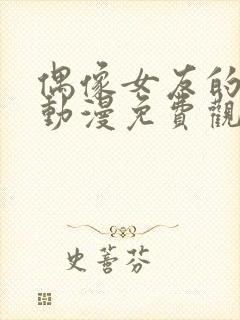 偶像女友的
動漫免費觀
史萫芬